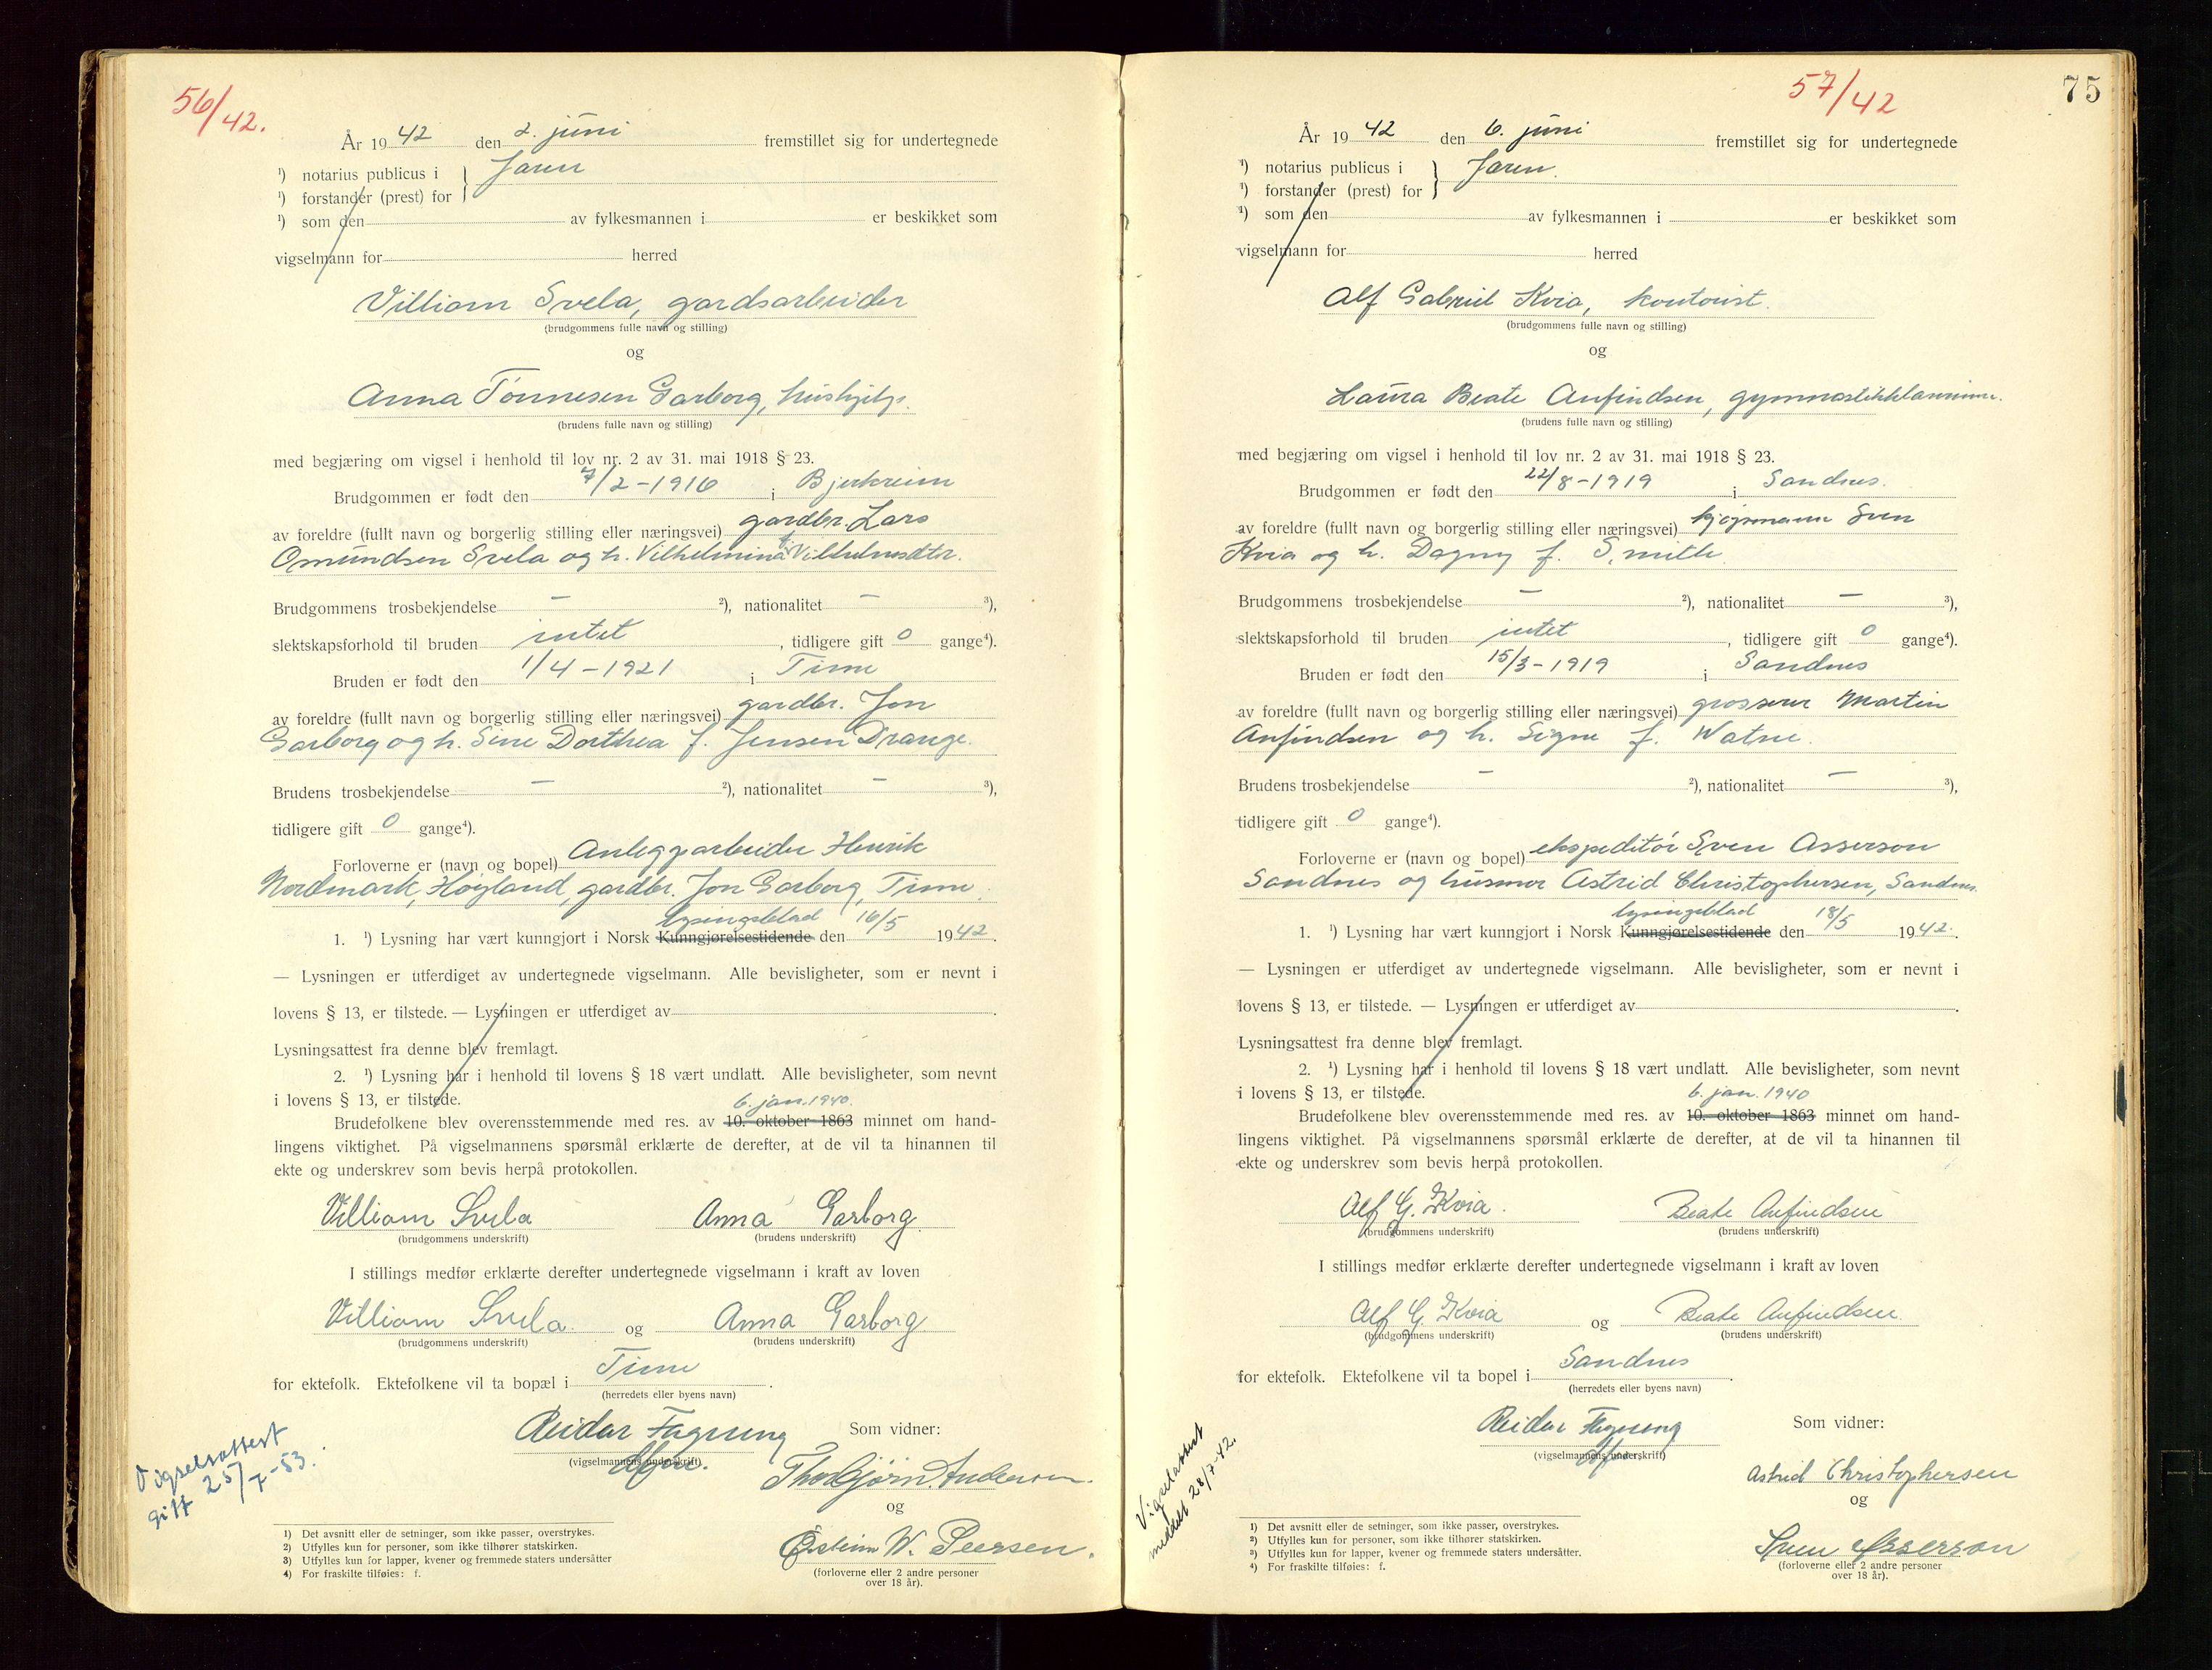 56/42.
År 1942 den 2. juni fremstillet sig for undertegnede
¹) notarius publicus i } Jæren
¹) forstander (prest) for
¹) som den av fylkesmannen i er beskikket som
vigselmann for herred
Villiam Svela, gardsarbeider
(brudgommens fulle navn og stilling)
og
Anna Tønnesen Garborg, hushjelp.
(brudens fulle navn og stilling)
med begjæring om vigsel i henhold til lov nr. 2 av 31. mai 1918 § 23.
Brudgommen er født den 7/2-1916 i Bjerkreim
av foreldre (fullt navn og borgerlig stilling eller næringsvei) gardbr. Lars
Omundsen Svela og h. Vilhelmina f. Vilhelmsdtr.
Brudgommens trosbekjendelse — ²), nationalitet — ³),
slektskapsforhold til bruden intet, tidligere gift 0 gange⁴).
Bruden er født den 1/4-1921 i Time
av foreldre (fullt navn og borgerlig stilling eller næringsvei) gardbr. Jon
Garborg og h. Sine Dorthea f. Jensen Drange.
Brudens trosbekjendelse — ²), nationalitet — ³),
tidligere gift 0 gange⁴).
Forloverne er (navn og bopel) Anleggsarbeider Henrik
Nordmark, Høyland, gardbr. Jon Garborg, Time.
lysingsblad
1. ¹) Lysning har vært kunngjort i Norsk Kunngjørelsestidende den 16/5 1942.
— Lysningen er utferdiget av undertegnede vigselmann. Alle bevisligheter, som er nevnt i
lovens § 13, er tilstede. — Lysningen er utferdiget av .
Lysningsattest fra denne blev fremlagt.
2. ¹) Lysning har i henhold til lovens § 18 vært undlatt. Alle bevisligheter, som nevnt
i lovens § 13, er tilstede.
6. jan. 1940.
Brudefolkene blev overensstemmende med res. av 10. oktober 1863 minnet om hand-
lingens viktighet. På vigselmannens spørsmål erklærte de derefter, at de vil ta hinannen til
ekte og underskrev som bevis herpå protokollen.
Villiam Svela Anna Garborg
(brudgommens underskrift) (brudens underskrift)
I stillings medfør erklærte derefter undertegnede vigselmann i kraft av loven
Villiam Svela og Anna Garborg
(brudgommens underskrift) (brudens underskrift)
for ektefolk. Ektefolkene vil ta bopæl i Time.
(herredets eller byens navn)
Reidar Fagseng Som vidner:
(vigselmannens underskrift)
Thorbjørn Andersen.
og
Østein W. Peersen.
(forloverne eller 2 andre personer
over 18 år).
Vigselsattest
gitt 25/7-53.
1) Det avsnitt eller de setninger, som ikke passer, overstrykes.
2) Utfylles kun for personer, som ikke tilhører statskirken.
3) Utfylles kun for lapper, kvener og fremmede staters undersåtter
4) For fraskilte tilføies: f.
57/42
75
År 1942 den 6. juni fremstillet sig for undertegnede
¹) notarius publicus i } Jæren.
¹) forstander (prest) for
¹) som den av fylkesmannen i er beskikket som
vigselmann for herred
Alf Gabriel Kvia, kontorist.
(brudgommens fulle navn og stilling)
og
Laura Beate Anfindsen, gymnastikklærerinne.
(brudens fulle navn og stilling)
med begjæring om vigsel i henhold til lov nr. 2 av 31. mai 1918 § 23.
Brudgommen er født den 22/8-1919 i Sandnes.
av foreldre (fullt navn og borgerlig stilling eller næringsvei) kjøpmann Sven
Kvia og h. Dagny f. Smith.
Brudgommens trosbekjendelse — ²), nationalitet — ³),
slektskapsforhold til bruden intet, tidligere gift 0 gange⁴).
Bruden er født den 15/3-1919 i Sandnes
av foreldre (fullt navn og borgerlig stilling eller næringsvei) grosserer Martin
Anfindsen og h. Signe f. Watne.
Brudens trosbekjendelse — ²), nationalitet — ³),
tidligere gift 0 gange⁴).
Forloverne er (navn og bopel) ekspeditør Sven Asserson
Sandnes og husmor Astrid Christophersen, Sandnes.
lysingsblad
1. ¹) Lysning har vært kunngjort i Norsk Kunngjørelsestidende den 18/5 1942.
— Lysningen er utferdiget av undertegnede vigselmann. Alle bevisligheter, som er nevnt i
lovens § 13, er tilstede. — Lysningen er utferdiget av .
Lysningsattest fra denne blev fremlagt.
2. ¹) Lysning har i henhold til lovens § 18 vært undlatt. Alle bevisligheter, som nevnt
i lovens § 13, er tilstede.
6. jan. 1940
Brudefolkene blev overensstemmende med res. av 10. oktober 1863 minnet om hand-
lingens viktighet. På vigselmannens spørsmål erklærte de derefter, at de vil ta hinannen til
ekte og underskrev som bevis herpå protokollen.
Alf G. Kvia. Beate Anfindsen
(brudgommens underskrift) (brudens underskrift)
I stillings medfør erklærte derefter undertegnede vigselmann i kraft av loven
Alf G. Kvia og Beate Anfindsen
(brudgommens underskrift) (brudens underskrift)
for ektefolk. Ektefolkene vil ta bopel i Sandnes.
(herredets eller byens navn)
Reidar Fagseng Som vidner:
(vigselmannens underskrift)
Astrid Christophersen
og
Sven Asserson
(forloverne eller 2 andre personer
over 18 år).
Vigselattest
meddelt 28/7-42.
1) Det avsnitt eller de setninger, som ikke passer, overstrykes.
2) Utfylles kun for personer, som ikke tilhører statskirken.
3) Utfylles kun for lapper, kvener og fremmede staters undersåtter.
4) For fraskilte tilføies: f.